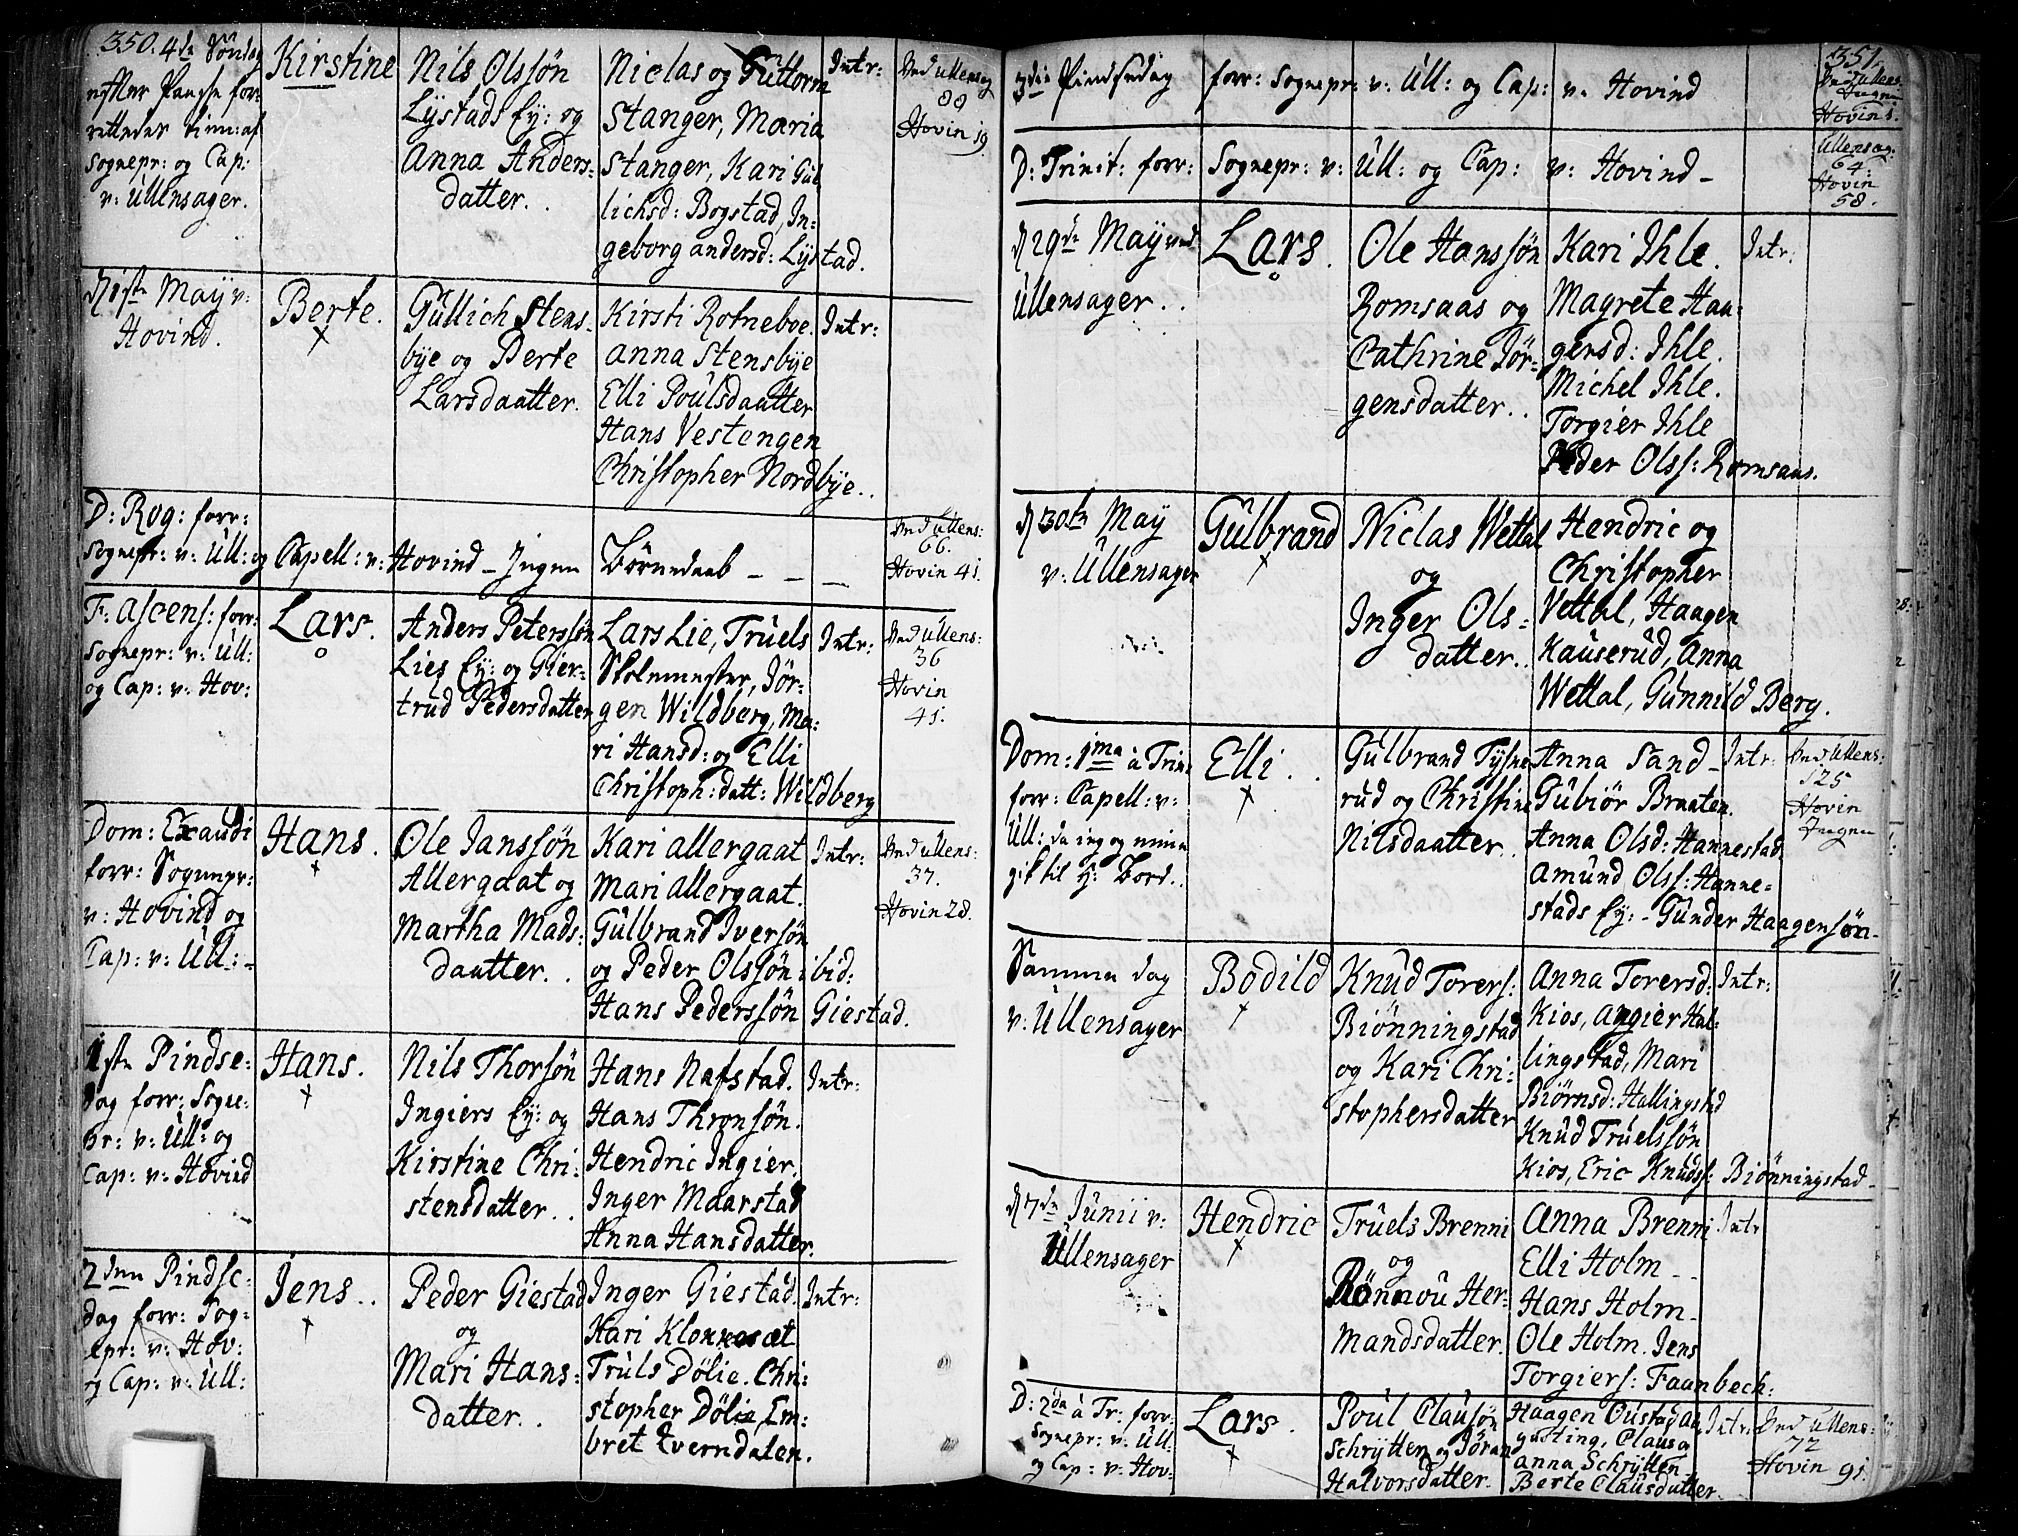 350.
4de Söndag
efter Paasche for-
rettedes tien: af
Sognepr: og Cap:
v: Ullensager.
Kirstine
Nils Olssön
Lystads Ey: og
Anna Anders-
datter.
Niclas og Guttorm
Stanger, Maria
Stanger, Kari Gul
lichsd: Bogstad, In-
geborg andersd: Lystad.
Intr:
Ved Ullensag
88
Hovin 19.
d 1ste Maÿ v:
Hovind.
Berte.
Gullich Stens-
bÿe og Berte
Larsdaatter.
Kirsti Rotneboe.
Anna Stensbÿe
Elli Poulsdaatter
Hans Vestengen
Christopher Nordbÿe..
Intr:
D: Rog: forr:
Sognepr: v: Ull: og Capell: v: Hovind – Ingen Börnedaab – – –
Ved Ullens:
66.
Hovin 41.
F: Ascens: forr:
Sognepr: v: Ull:
og Cap: v: Hov:
Lars.
Anders Peterssön
Lies Ey: og Gier-
trud Pedersdatter
Lars Lie, Truels
Skolemester, Jör-
gen Wildberg, Ma-
ri Hansd: og Elli
Christoph: datt: Wildberg
Intr:
Ved Ullens:
36
Hovin
41.
Dom: Exaudi
forr: Sognepr:
v: Hovind og
Cap: v: Ull: –
Hans.
Ole Janssön
Allergaat og
Martha Mads-
daatter..
Kari allergaat
Mari allergaat.
Gulbrand Iversön
og Peder Olssön ibid:
Hans Pederssön Giestad.
Intr:
Ved Ullens:
37.
Hovin 28.
1ste Pindse-
dag forr: Sogne-
pr: v: Ull: og
Cap: v: Hovind
Hans.
Nils Thorsön
Ingiers Ey: og
Kirstine Chri-
stensdatter..
Hans Nafstad.
Hans Thronsön.
Hendric Ingier.
Inger Maarstad
Anna Hansdatter.
Intr:
2den Pindse-
dag forr: Sog-
nepr: v: Hov:
og Cap: v: Ull:
Jens..
Peder Giestad
og
Mari Hans-
datter..
Inger Giestad.
Kari Klonnesæt
Truls Dölie. Chri-
stopher Dölie, Em-
bret Everndalen.
Intr:
351.
3die Pindsedag forr: Sognepr: v: Ull: og Cap: v: Hovind
Ved Ullens
Ingen
Hovin 1.
D: Trinit: forr: Sognepr: v: Ull: og Cap: v: Hovind –
Ullensag:
64.
Hovin
58.
d 29de Maÿ ved
Ullensager..
Lars.
Ole Hanssön
Romsaas og
Cathrine Jör-
gensdatter..
Kari Ihle.
Magrete Haa-
gersd: Ihle.
Michel Ihle.
Torgier Ihle
Peder Olss: Romsaas.
Intr:
d 30te Maÿ
v: Ullensager
Gulbrand
Niclas Wettal
og
Inger Ols-
datter..
Hendric og
Christopher
Vettal, Haagen
Kauserud, Anna
Wettal, Gunnild Berg.
Dom: 1ma à Trin:
forr: Capell: v:
Ull: da ing og ninia
gik til H: Bord..
Elli..
Gulbrand Tysne
rud og Christine
Nilsdaatter..
Anna Sand –
Gubiör Braaten.
Anna Olsd: Hannestad
Amund Olss: Hanne-
stads Ey: – Gunder Haagensön –
Intr:
Ved Ullens:
125
Hovin
Ingen
Samme dag
v: Ullensager
Bodild
Knud Torers:
Biönningstad
og Kari Chri-
stophersdatter
Anna Torersd:
Kios, Angier Hal-
lingstad, Mari
Biörnsd: Hallingstad
Knud Truelssön
Kios, Eric Knudss: Biönningstad –
Intr:
d 7de Junii v:
Ullensager
Hendric
Truels Brenni
og
Rönnou Her-
mandsdatter.
Anna Brenni
Elli Holm –
Hans Holm –
Ole Holm. Jens
Torgiers: Faanbech:
Intr
D: 2da à Tr: forr:
Sognepr: v: Ull.
og Cap: v: Hov:
Lars.
Poul Clausön
Schrÿtten og Jöran
Halvorsdatter.
Haagen Oustad Au
gusting, Claus og
anna Schrÿtten
Berte Clausdatter.
Intr:
Ved Ullens:
72
Hovin 91.